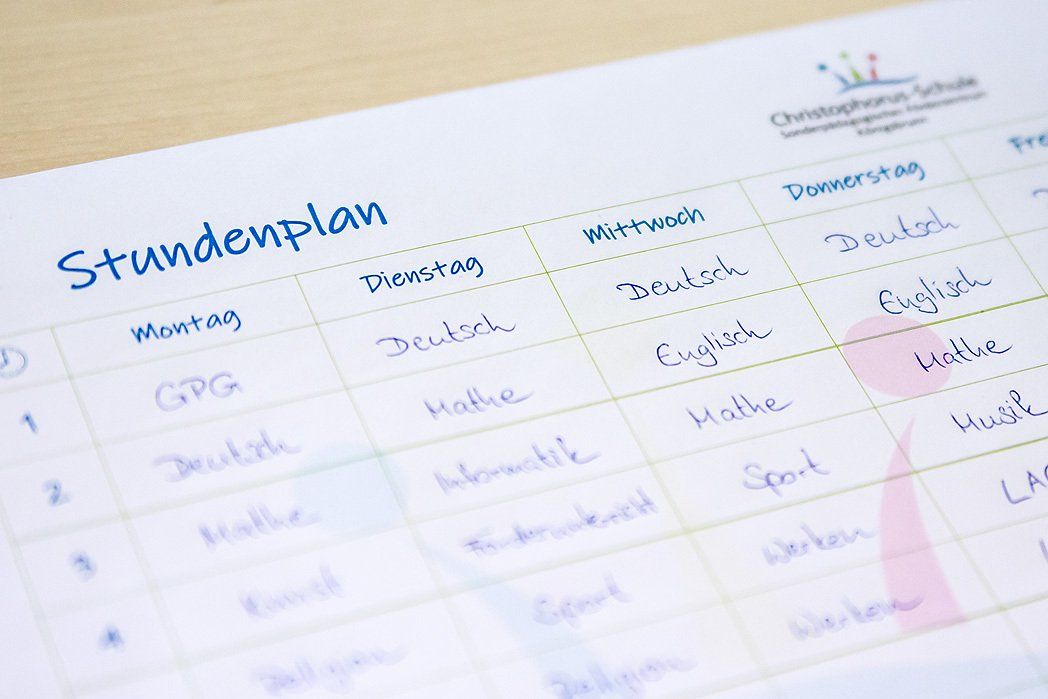 Christophorus-Schule
Sonderpädagogisches Förderzentrum
Königsbrunn
Stundenplan
Montag Dienstag Mittwoch Donnerstag Fre
1 GPG Deutsch Deutsch Deutsch
2 Deutsch Mathe Englisch Englisch
3 Mathe Informatik Mathe Mathe
4 Kunst Förderunterricht Sport Musik
Religion Sport Werken LAG
Religion Werken